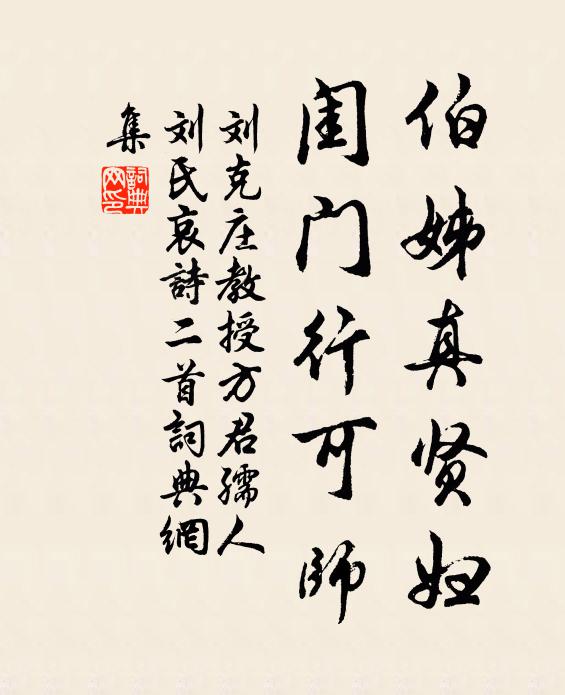 伯姊真贤妇
闺门行可师
刘克庄教授方君孺人
刘氏哀詩二首詞典網
集
詞典网印